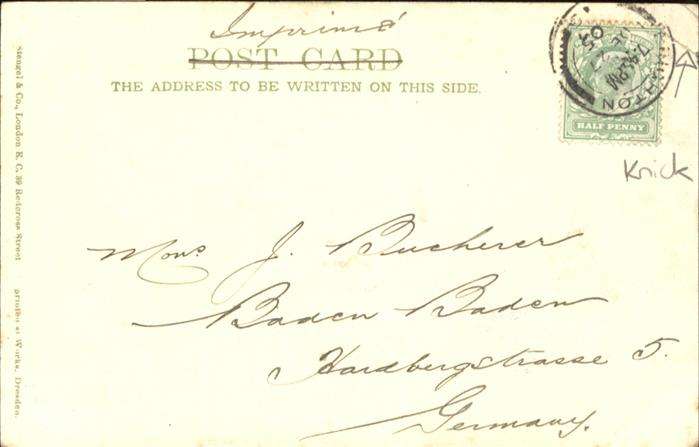 Imprimé
POST CARD
THE ADDRESS TO BE WRITTEN ON THIS SIDE.
HALF PENNY
Knick
Mons J. Bucherer
Baden Baden
Hardbergstrasse 5.
Germany.
Stengel & Co., London E. C. 39 Redcross Street
printed at Works, Dresden.